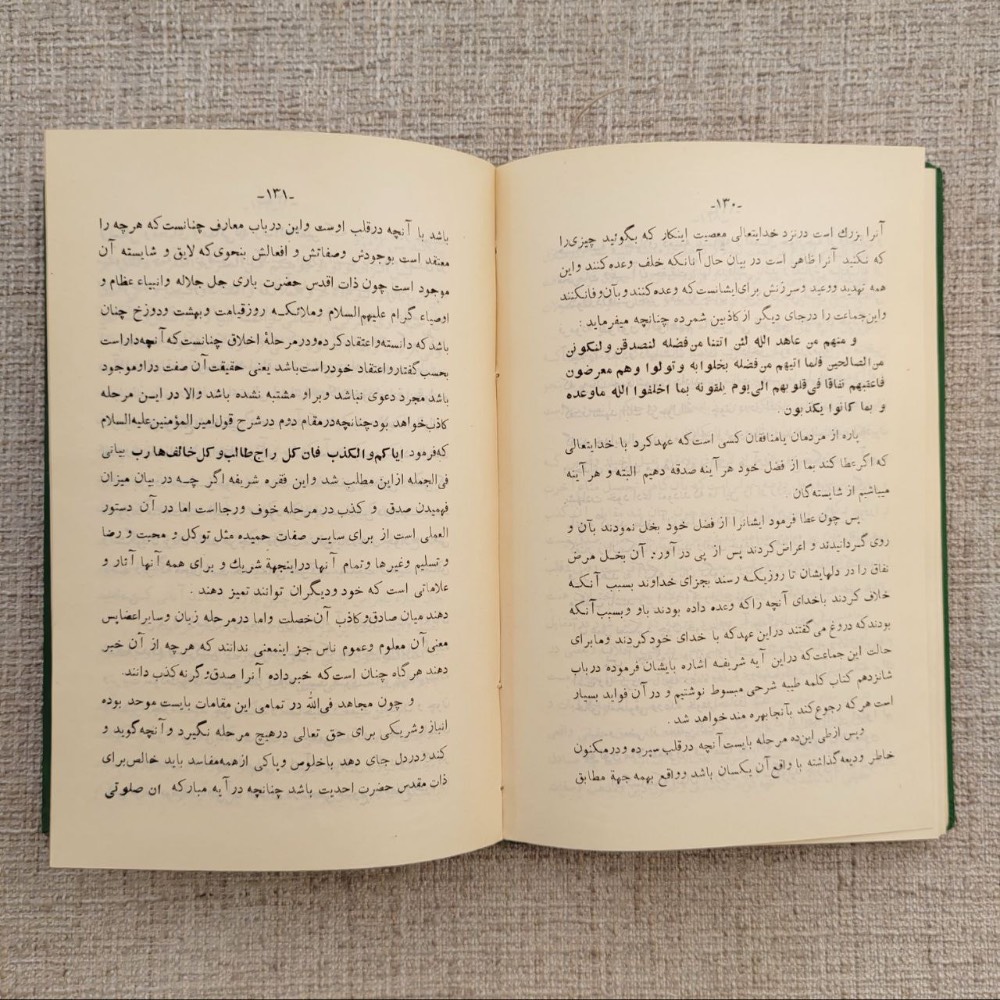 -۱۳۰-
آنرا بزرك است درنزد خدایتعالی معصیت اینکار که بگوئید چیزی را
که نکنید آنرا ظاهر است در بیان حال آنانکه خلف وعده کنند واین
همه تهدید ووعید وسرزنش برای ایشانست که وعده کنند وبآن وفانکنند
واین جماعت را درجای دیگر از کاذبین شمرده چنانچه میفرماید :
و منهم من عاهد الله لئن اتنا من فضله لنصدقن و لنکونن
من الصالحین فلما اتیهم من فضله بخلوابه وتولوا وهم معرضون
فاعقبهم نفاقا فی قلوبهم الی یوم یلقونه بما اخلفوا الله ماوعده
و بما کانوا یکذبون.
پاره از مردمان یامنافقان کسی است که عهد کرد با خدایتعالی
که اگر عطا کند بما از فضل خود هر آینه صدقه دهیم البته و هر آینه
میباشیم از شایسته گان.
پس چون عطا فرمود ایشانرا از فضل خود بخل نمودند بآن و
روی گردانیدند و اعراض کردند پس از پی در آورد آن بخل مرض
نفاق را در دلهایشان تا روزیکه رسند بجزای خداوند بسبب آنکه
خلاف کردند باخدای آنچه راکه وعده داده بودند باو وبسبب آنکه
بودند که دروغ می گفتند دراین عهد که با خدای خود کردند ومابرای
حالت این جماعت که دراین آیه شریفه اشاره بایشان فرموده درباب
شانزدهم کتاب کلمه طیبه شرحی مبسوط نوشتیم و در آن فواید بسیار
است هرکه رجوع کند بآنجا بهره مند خواهد شد .
وپس ازطی این ده مرحله بایست آنچه درقلب سپرده ودرمکنون
خاطر ودیعه گذاشته با واقع آن یکسان باشد وواقع بهمه جهة مطابق
-۱۳۱-
باشد با آنچه درقلب اوست واین درباب معارف چنانست که هرچه را
معتقد است بوجودش وصفاتش و افعالش بنحوی که لایق و شایسته آن
موجود است چون ذات اقدس حضرت باری جل جلاله وانبیاء عظام و
اوصیاء گرام علیهم السلام وملائکه روزقیامت وبهشت ودوزخ چنان
باشد که دانسته واعتقاد کرده ودرمرحلهٔ اخلاق چنانست که آنچه داراست
بحسب گفتار واعتقاد خود راست باشد یعنی حقیقت آن صفت دراوموجود
باشد مجرد دعوی نباشد وبراو مشتبه نشده باشد والا در این مرحله
کاذب خواهد بود چنانچه درمقام دوم درشرح قول امیرالمؤمنین علیه السلام
که فرمود ایاکم والکذب فان کل راج طالب وکل خائف هارب بیانی
فی الجمله ازاین مطلب شد واین فقره شریفه اگر چه در بیان میزان
فهمیدن صدق و کذب در مرحله خوف ورجاست اما در آن دستور
العملی است از برای سایر صفات حمیده مثل توکل و محبت و رضا
وتسلیم وغیرها وتمام آنها دراینجهة شریك و برای همه آنها آثار و
علاماتی است که خود ودیگران توانند تمیز دهند .
دهند میان صادق وکاذب آن خصلت واما درمرحله زبان وسایر اعضایس
معنی آن معلوم وعموم ناس جز اینمعنی ندانند که هرچه از آن خبر
دهند هرگاه چنان است که خبرداده آنرا صدق وگرنه کذب دانند.
و چون مجاهد فی الله در تمامی این مقامات بایست موحد بوده
انباز وشریکی برای حق تعالی درهیچ مرحله نگیرد وآنچه گوید و
کند ودردل جای دهد باخلوص وپاکی ازهمه مفاسد باید خالص برای
ذات مقدس حضرت احدیت باشد چنانچه در آیه مبارکه ان صلوتی